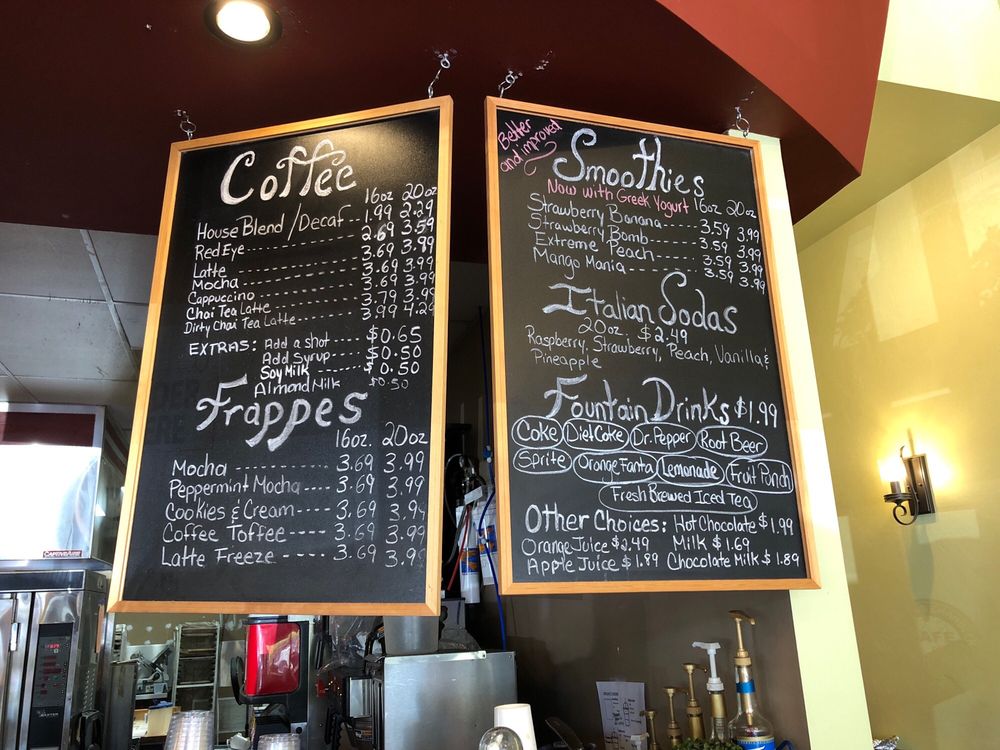 Coffee
16oz 20oz
House Blend / Decaf -- 1.99 2.29
Red Eye ---------- 2.69 3.59
Latte ---------- 3.69 3.99
Mocha ---------- 3.69 3.99
Cappuccino ---------- 3.69 3.99
Chai Tea Latte ---------- 3.79 3.99
Dirty Chai Tea Latte ---------- 3.99 4.29
EXTRAS: Add a shot ---- $0.65
Add Syrup ---- $0.50
Soy Milk ---- $0.50
Almond Milk $0.50
Frappes
16oz. 20oz
Mocha ---------- 3.69 3.99
Peppermint Mocha ---- 3.69 3.99
Cookies & Cream ---- 3.69 3.99
Coffee Toffee ---- 3.69 3.99
Latte Freeze ---- 3.69 3.99
Better
and improved
Smoothies
Now with Greek Yogurt 16oz 20oz
Strawberry Banana ---- 3.59 3.99
Strawberry Bomb ---- 3.59 3.99
Extreme Peach ---- 3.59 3.99
Mango Mania ---- 3.59 3.99
Italian Sodas
20oz. $2.49
Raspberry, Strawberry, Peach, Vanilla &
Pineapple
Fountain Drinks $1.99
Coke Diet Coke Dr. Pepper Root Beer
Sprite Orange Fanta Lemonade Fruit Punch
Fresh Brewed Iced Tea
Other Choices: Hot Chocolate $1.99
Orange Juice $2.49 Milk $1.69
Apple Juice $1.89 Chocolate Milk $1.89
CAPTIVEAIRE